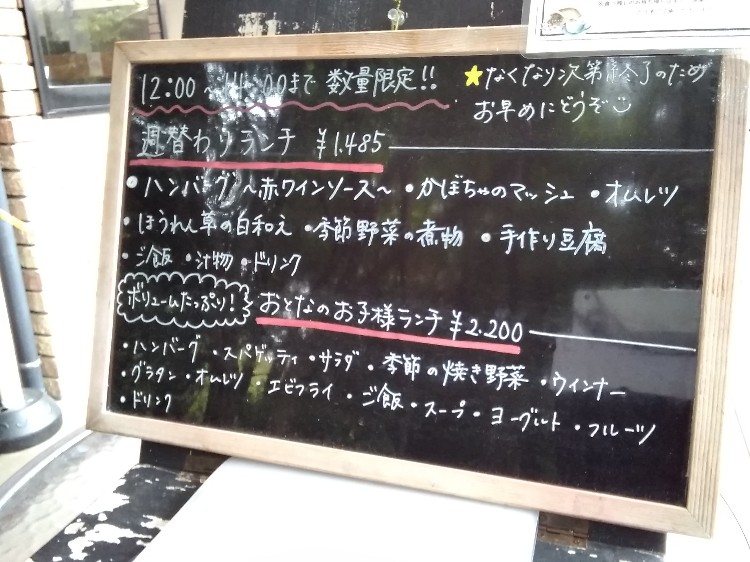 12:00～14:00まで 数量限定!!
★なくなり次第終了のため
お早めにどうぞ
週替わりランチ ¥1.485
・ハンバーグ～赤ワインソース～ ・かぼちゃのマッシュ ・オムレツ
・ほうれん草の白和え ・季節野菜の煮物 ・手作り豆腐
・ご飯 ・汁物 ・ドリンク
ボリュームたっぷり!
おとなのお子様ランチ ¥2.200
・ハンバーグ ・スパゲッティ ・サラダ ・季節の焼き野菜 ・ウインナー
・グラタン ・オムレツ ・エビフライ ・ご飯 ・スープ ・ヨーグルト ・フルーツ
・ドリンク